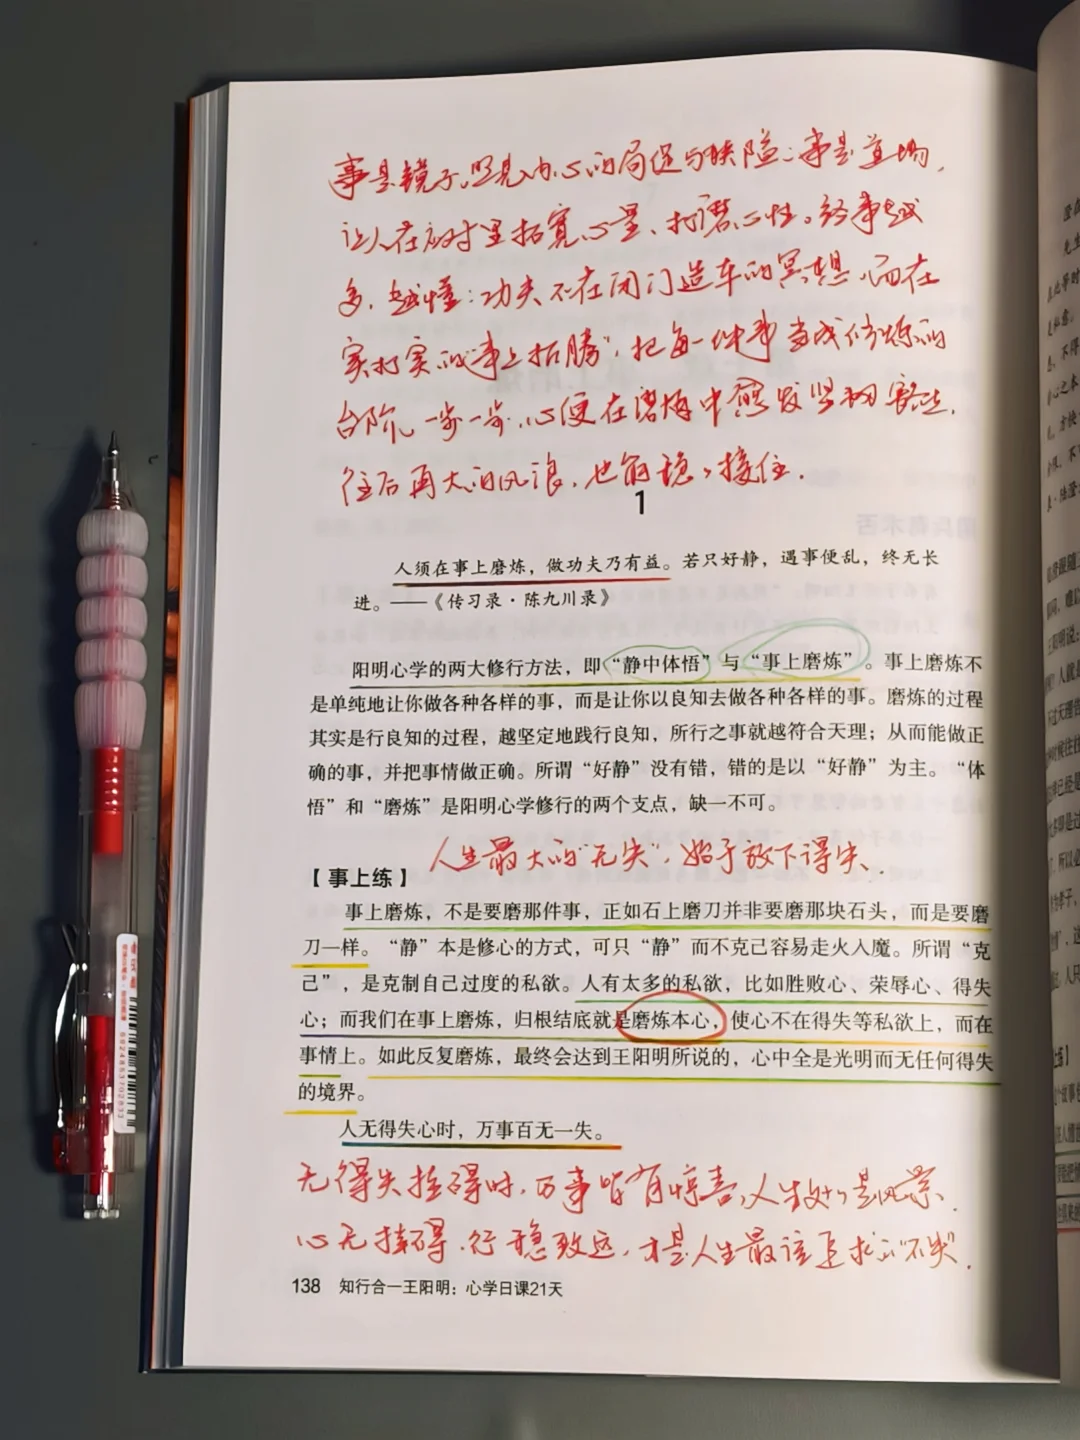 事是镜子,照见内心的局促与狭隘;事是道场,
让人在应对里拓宽心量、打磨心性。经事越
多,越懂:功夫不在闭门造车的冥想,而在
实打实的“事上拓腾”,把每一件事当成修炼的
台阶,一步一步,心便在磨炼中愈发坚韧豁达,
往后再大的风浪,也能稳稳接住.
1
人须在事上磨炼,做功夫乃有益。若只好静,遇事便乱,终无长
进。——《传习录·陈九川录》
阳明心学的两大修行方法,即“静中体悟”与“事上磨炼”。事上磨炼不
是单纯地让你做各种各样的事,而是让你以良知去做各种各样的事。磨炼的过程
其实是行良知的过程,越坚定地践行良知,所行之事就越符合天理;从而能做正
确的事,并把事情做正确。所谓“好静”没有错,错的是以“好静”为主。“体
悟”和“磨炼”是阳明心学修行的两个支点,缺一不可。
人生最大的“无失”,始于放下得失.
【事上练】
事上磨炼,不是要磨那件事,正如石上磨刀并非要磨那块石头,而是要磨
刀一样。“静”本是修心的方式,可只“静”而不克己容易走火入魔。所谓“克
己”,是克制自己过度的私欲。人有太多的私欲,比如胜败心、荣辱心、得失
心;而我们在事上磨炼,归根结底就是磨炼本心,使心不在得失等私欲上,而在
事情上。如此反复磨炼,最终会达到王阳明所说的,心中全是光明而无任何得失
的境界。
人无得失心时,万事百无一失。
无得失挂碍时,万事皆有惊喜,人生处处是风景.
心无挂碍,行稳致远,才是人生最该追求的“不失”.
138 知行合一王阳明:心学日课21天